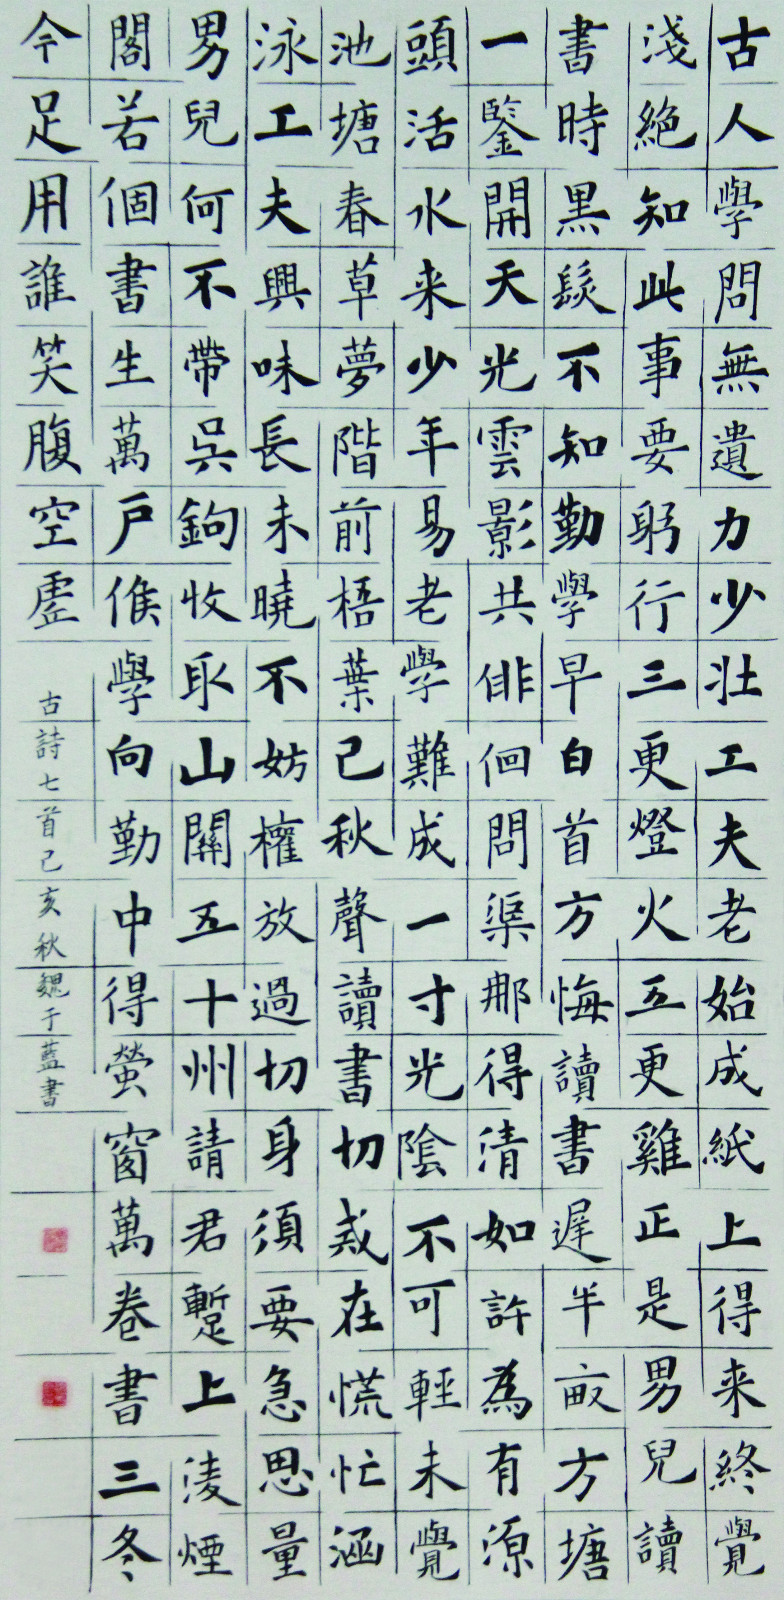 古人學問無遺力少壯工夫老始成紙上得来終覺
淺絕知此事要躬行三更燈火五更雞正是男兒讀
書時黑髮不知勤學早白首方悔讀書遲半畝方塘
一鑒開天光雲影共俳佪問渠那得清如許為有源
頭活水来少年易老學難成一寸光陰不可輕未覺
池塘春草夢階前梧葉已秋聲讀書切戒在慌忙涵
泳工夫興味長未曉不妨權放過切身須要急思量
男兒何不帶吳鉤收取山關五十州請君蹔上淩煙
閣若個書生萬戶侯學向勤中得螢窗萬卷書三冬
今足用誰笑腹空虛
古詩七首己亥秋魏于藍書